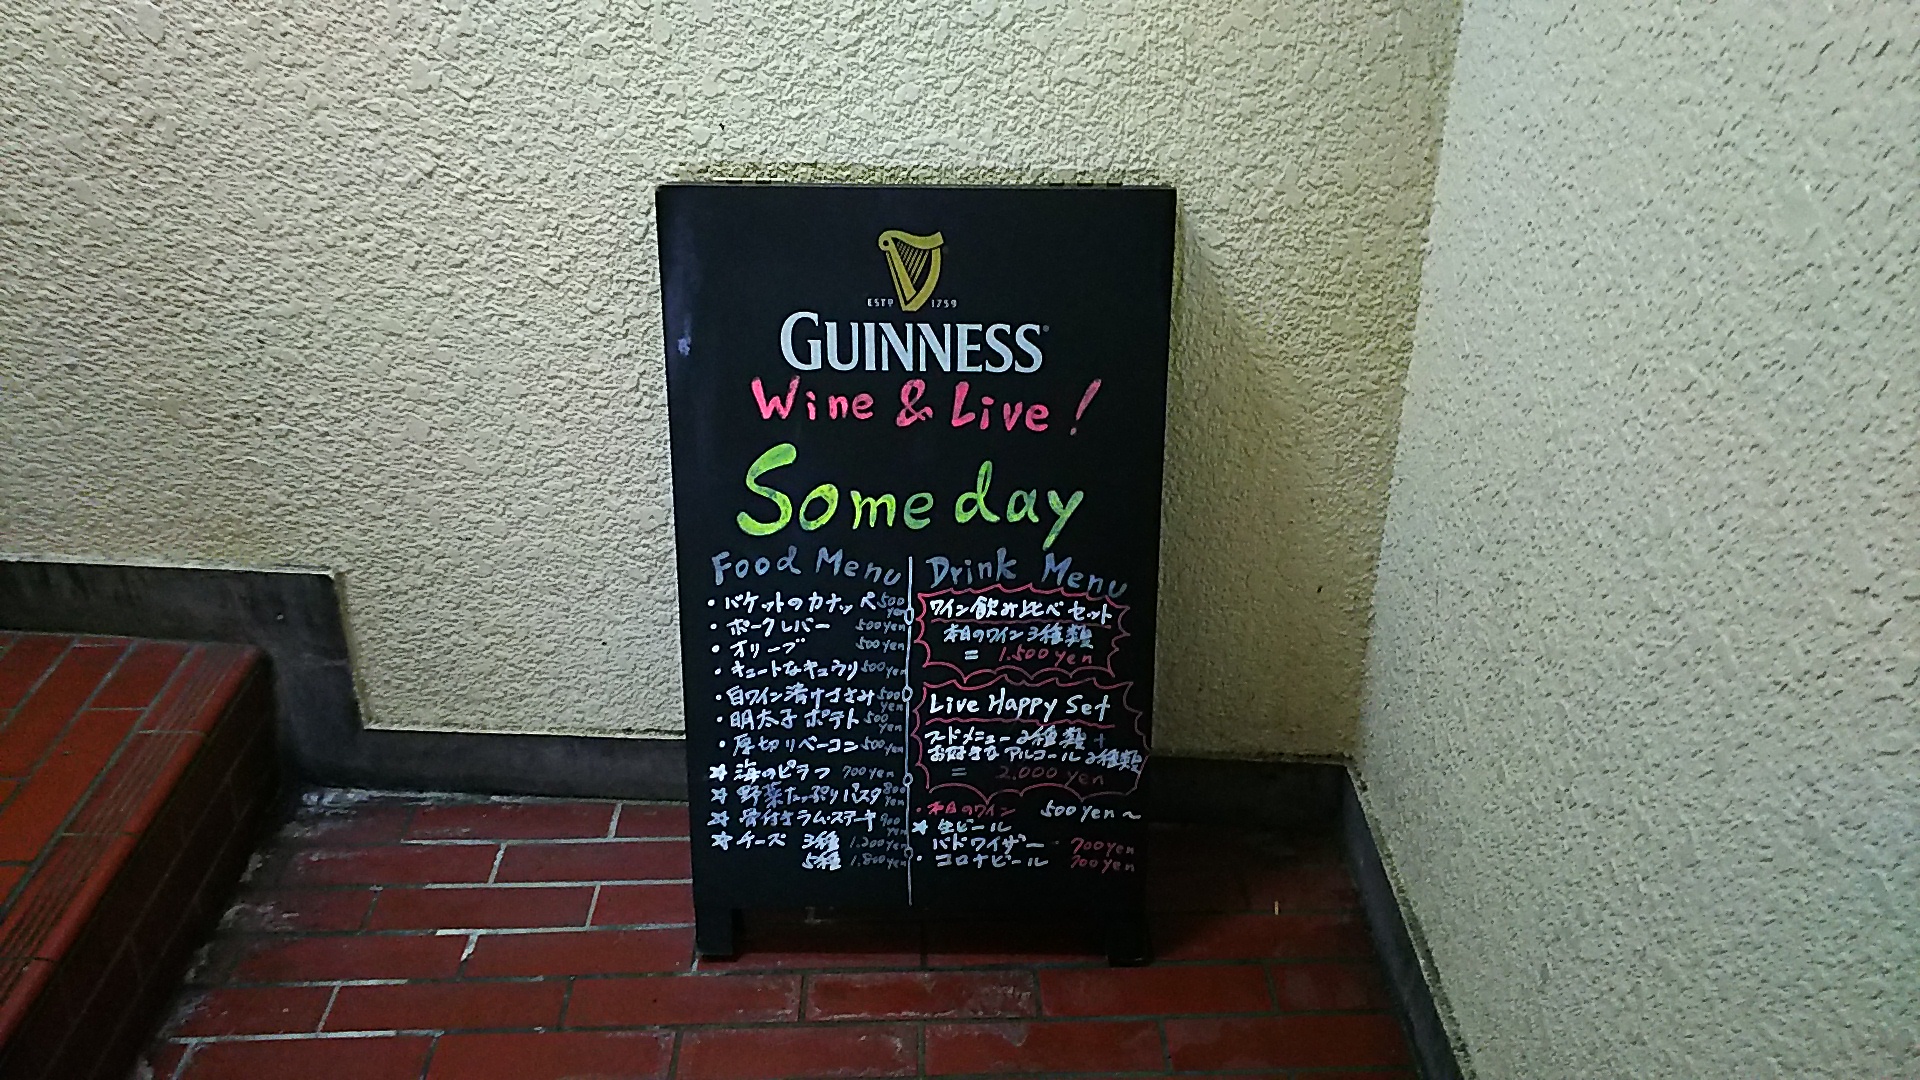 ESTD 1759
GUINNESS
Wine & Live!
Someday
Food Menu
・バケットのカナッペ 500yen
・ポークレバー 500yen
・オリーブ 500yen
・キュートなキュウリ 500yen
・白ワイン漬けささみ 500yen
・明太子ポテト 500yen
・厚切りベーコン 500yen
☆海のピラフ 700yen
☆野菜たっぷりパスタ 800yen
☆骨付きラム・ステーキ 900yen
☆チーズ 3種 1.200yen
5種 1.800yen
Drink Menu
ワイン飲み比べセット
本日のワイン3種類
= 1.500yen
Live Happy Set
フードメニュー2種類+
お好きなアルコール2種類
= 2.000yen
・本日のワイン 500yen〜
☆生ビール
バドワイザー 700yen
・コロナビール 700yen